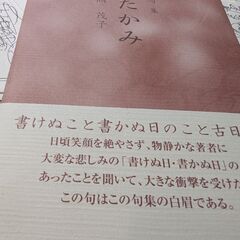 たかみ
茂子
書けぬこと書かぬ日のこと古日
日頃笑顔を絶やさず、物静かな著者に
大変な悲しみの「書けぬ日・書かぬ日」の
あったことを聞いて、大きな衝撃を受けた
この句はこの句集の白眉である。